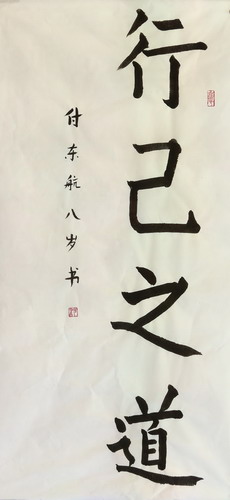 行己之道
付东航八岁书